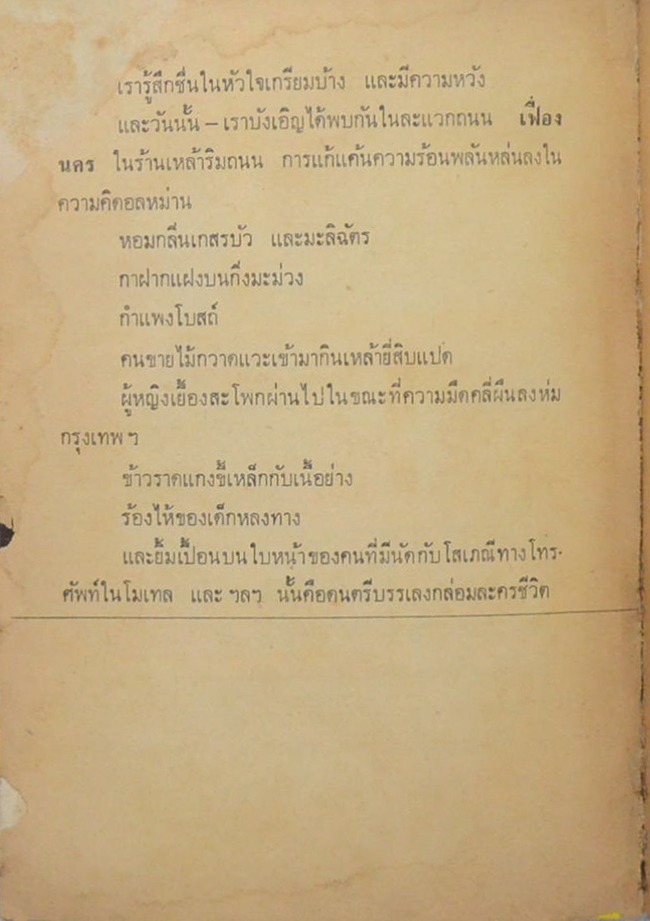 เรารู้สึกชื่นในหัวใจเกรียมบ้าง และมีความหวัง
และวันนั้น – เราบังเอิญได้พบกันในละแวกถนน เฟื่อง
นคร ในร้านเหล้าริมถนน การแก้แค้นความร้อนพลันหล่นลงใน
ความคิดอลหม่าน
หอมกลิ่นเกสรบัว และมะลิฉัตร
กาฝากแฝงบนกิ่งมะม่วง
กำแพงโบสถ์
คนขายไม้กวาดแวะเข้ามากินเหล้ายี่สิบแปด
ผู้หญิงเยื้องสะโพกผ่านไปในขณะที่ความมืดคลี่ผืนลงห่ม
กรุงเทพ ฯ
ข้าวราดแกงขี้เหล็กกับเนื้อย่าง
ร้องไห้ของเด็กหลงทาง
และยิ้มเปื้อนบนใบหน้าของคนที่มีนัดกับโสเภณีทางโทร-
ศัพท์ในโมเทล และ ฯลฯ นั้นคือดนตรีบรรเลงกล่อมละครชีวิต